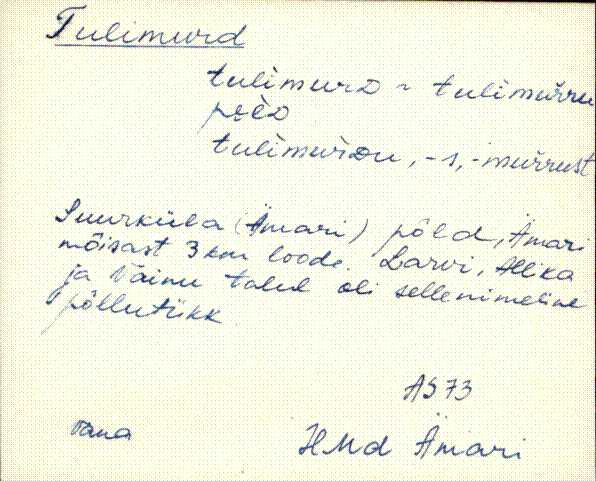 Tulimurd
tulimurD ~ tulimurru
põlD
tulimurDu, -s, -murrust
Suurküla (Ämari) põld, Ämari
mõisast 3 km loode. Larvi, Allika
ja Vainu talul oli sellenimeline
põllutükk
AS 73
vana
HMd Ämari